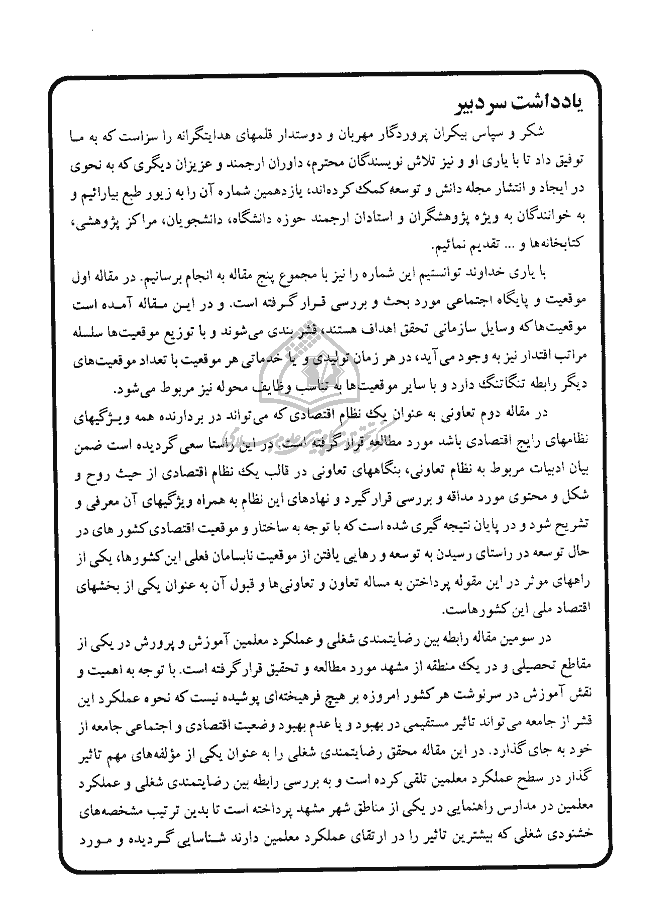 یادداشت سردبیر
شکر و سپاس بیکران پروردگار مهربان و دوستدار قلمهای هدایتگرانه را سزاست که به مـا
توفیق داد تا با یاری او و نیز تلاش نویسندگان محترم، داوران ارجمند و عزیزان دیگری که به نحوی
در ایجاد و انتشار مجله دانش و توسعه کمک کرده‌اند، یازدهمین شماره آن را به زیور طبع بیارائیم و
به خوانندگان به ویژه پژوهشگران و استادان ارجمند حوزه دانشگاه، دانشجویان، مراکز پژوهشی،
کتابخانه‌ها و ... تقدیم نمائیم.
با یاری خداوند توانستیم این شماره را نیز با مجموع پنج مقاله به انجام برسانیم. در مقاله اول
موقعیت و پایگاه اجتماعی مورد بحث و بررسی قرار گرفته است. و در این مقاله آمده است
موقعیت‌ها که وسایل سازمانی تحقق اهداف هستند، قشر بندی می‌شوند و با توزیع موقعیت‌ها سلسله
مراتب اقتدار نیز به وجود می‌آید، در هر زمان تولیدی و یا خدماتی هر موقعیت با تعداد موقعیت‌های
دیگر رابطه تنگاتنگ دارد و با سایر موقعیت‌ها به تناسب وظایف محوله نیز مربوط می‌شود.
در مقاله دوم تعاونی به عنوان یک نظام اقتصادی که می‌تواند در بردارنده همه ویژگیهای
نظامهای رایج اقتصادی باشد مورد مطالعه قرار گرفته است. در این راستا سعی گردیده است ضمن
بیان ادبیات مربوط به نظام تعاونی، بنگاههای تعاونی در قالب یک نظام اقتصادی از حیث روح و
شکل و محتوی مورد مداقه و بررسی قرار گیرد و نهادهای این نظام به همراه ویژگیهای آن معرفی و
تشریح شود و در پایان نتیجه گیری شده است که با توجه به ساختار و موقعیت اقتصادی کشور های در
حال توسعه در راستای رسیدن به توسعه و رهایی یافتن از موقعیت نابسامان فعلی این کشورها، یکی از
راههای موثر در این مقوله پرداختن به مساله تعاون و تعاونی‌ها و قبول آن به عنوان یکی از بخشهای
اقتصاد ملی این کشورهاست.
در سومین مقاله رابطه بین رضایتمندی شغلی و عملکرد معلمین آموزش و پرورش در یکی از
مقاطع تحصیلی و در یک منطقه از مشهد مورد مطالعه و تحقیق قرار گرفته است. با توجه به اهمیت و
نقش آموزش در سرنوشت هر کشور امروزه بر هیچ فرهیخته‌ای پوشیده نیست که نحوه عملکرد این
قشر از جامعه می‌تواند تاثیر مستقیمی در بهبود و یا عدم بهبود وضعیت اقتصادی و اجتماعی جامعه از
خود به جای گذارد. در این مقاله محقق رضایتمندی شغلی را به عنوان یکی از مؤلفه‌های مهم تاثیر
گذار در سطح عملکرد معلمین تلقی کرده است و به بررسی رابطه بین رضایتمندی شغلی و عملکرد
معلمین در مدارس راهنمایی در یکی از مناطق شهر مشهد پرداخته است تا بدین ترتیب مشخصه‌های
خشنودی شغلی که بیشترین تاثیر را در ارتقای عملکرد معلمین دارند شناسایی گردیده و مورد